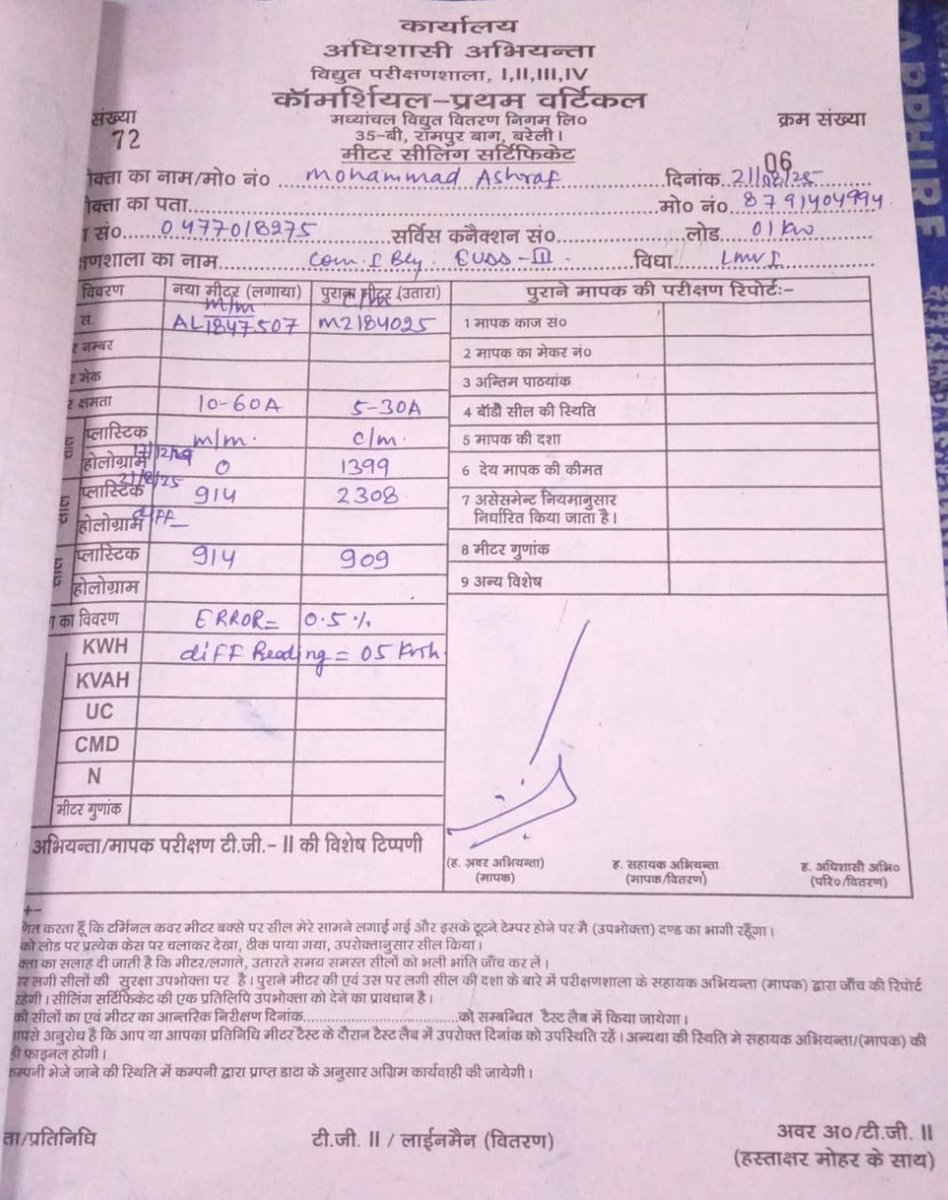 कार्यालय
अधिशासी अभियन्ता
विद्युत परीक्षणशाला, I,II,III,IV
कॉमर्शियल-प्रथम वर्टिकल
मध्यांचल विद्युत वितरण निगम लि०
35-बी, रामपुर बाग, बरेली।
मीटर सीलिंग सर्टिफिकेट
संख्या
72
क्रम संख्या
क्ता का नाम/मो० नं० Mohammad Ashraf दिनांक 21/06/25
क्ता का पता मो० नं० 8791404994
सं० 0477018275 सर्विस कनैक्शन सं० लोड 01 kw
क्षणशाला का नाम Com. I Bly. EUSS-III विधा LMV I
विवरण नया मीटर (लगाया) पुराना मीटर (उतारा) पुराने मापक की परीक्षण रिपोर्टः-
m/m c/m
सं AL1847507 M2184025 1 मापक काज सं०
र नम्बर 2 मापक का मेकर नं०
र मेक 3 अन्तिम पाठयांक
र क्षमता 10-60A 5-30A 4 बॉडी सील की स्थिति
प्लास्टिक m/m. c/m. 5 मापक की दशा
होलोग्राम 0 1399 6 देय मापक की कीमत
प्लास्टिक 914 2308 7 असेसमेन्ट नियमानुसार
निर्धारित किया जाता है।
होलोग्राम diff
प्लास्टिक 914 909 8 मीटर गुणांक
होलोग्राम 9 अन्य विशेष
का विवरण ERROR= 0.5%
KWH diff Reading = 05 Kwh
KVAH
UC
CMD
N
मीटर गुणांक
अभियन्ता/मापक परीक्षण टी.जी.- II की विशेष टिप्पणी
(ह. अवर अभियन्ता) ह. सहायक अभियन्ता ह. अधिशासी अभि०
(मापक) (मापक/वितरण) (परि०/वितरण)
णित करता हूँ कि टर्मिनल कवर मीटर बक्से पर सील मेरे सामने लगाई गई और इसके टूटने टेम्पर होने पर मै (उपभोक्ता) दण्ड का भागी रहूँगा।
को लोड पर प्रत्येक केस पर चलाकर देखा, ठीक पाया गया, उपरोक्तानुसार सील किया।
क्ता का सलाह दी जाती है कि मीटर/लगाते, उतारते समय समस्त सीलों को भली भांति जाँच कर लें।
र लगी सीलों की सुरक्षा उपभोक्ता पर है। पुराने मीटर की एवं उस पर लगी सील की दशा के बारे में परीक्षणशाला के सहायक अभियन्ता (मापक) द्वारा जाँच की रिपोर्ट
रहेगी। सीलिंग सर्टिफिकेट की एक प्रतिलिपि उपभोक्ता को देने का प्रावधान है।
की सीलों का एवं मीटर का आन्तरिक निरीक्षण दिनांक को सम्बन्धित टैस्ट लैब में किया जायेगा।
पसे अनुरोध है कि आप या आपका प्रतिनिधि मीटर टैस्ट के दौरान टैस्ट लैब में उपरोक्त दिनांक को उपस्थिति रहें। अन्यथा की स्थिति मे सहायक अभियन्ता/(मापक) की
ही फाइनल होगी।
कम्पनी भेजे जाने की स्थिति में कम्पनी द्वारा प्राप्त डाटा के अनुसार अग्रिम कार्यवाही की जायेगी।
ता/प्रतिनिधि टी.जी. II / लाईनमैन (वितरण) अवर अ०/टी.जी. II
(हस्ताक्षर मोहर के साथ)